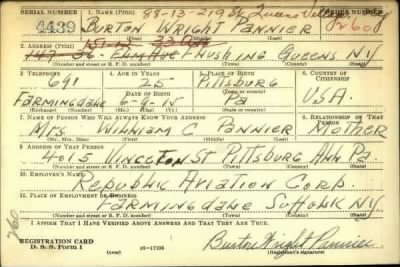 SERIAL NUMBER 1. NAME (Print) 88-13-219 St Queens Village ORDER NUMBER
4439 BURTON WRIGHT PANNIER 260
2. ADDRESS (Print)
147-36 - Elm Ave FLUSHING QUEENS NY
(Number and street or R. F. D. number) (Town) (County) (State)
3. TELEPHONE 4. AGE IN YEARS 5. PLACE OF BIRTH 6. COUNTRY OF CITIZENSHIP
691 25 PITTSBURG
DATE OF BIRTH
FARMINGDALE 6-9-15 PA U.S.A.
(Exchange) (Number) (Mo.) (Day) (Yr.) (State or country)
7. NAME OF PERSON WHO WILL ALWAYS KNOW YOUR ADDRESS 8. RELATIONSHIP OF THAT PERSON
MRS WILLIAM C PANNIER MOTHER
(Mr., Mrs., Miss) (First) (Middle) (Last)
9. ADDRESS OF THAT PERSON
4015 ST PITTSBURG PA.
(Number and street or R. F. D. number) (Town) (County) (State)
10. EMPLOYER'S NAME
REPUBLIC AVIATION CORP.
11. PLACE OF EMPLOYMENT OR BUSINESS
FARMINGDALE SUFFOLK NY
(Number and street or R. F. D. number) (Town) (County) (State)
I AFFIRM THAT I HAVE VERIFIED ABOVE ANSWERS AND THAT THEY ARE TRUE.
REGISTRATION CARD
D. S. S. Form 1 (over) 16-17105 Burton Wright Pannier
(Registrant's signature)